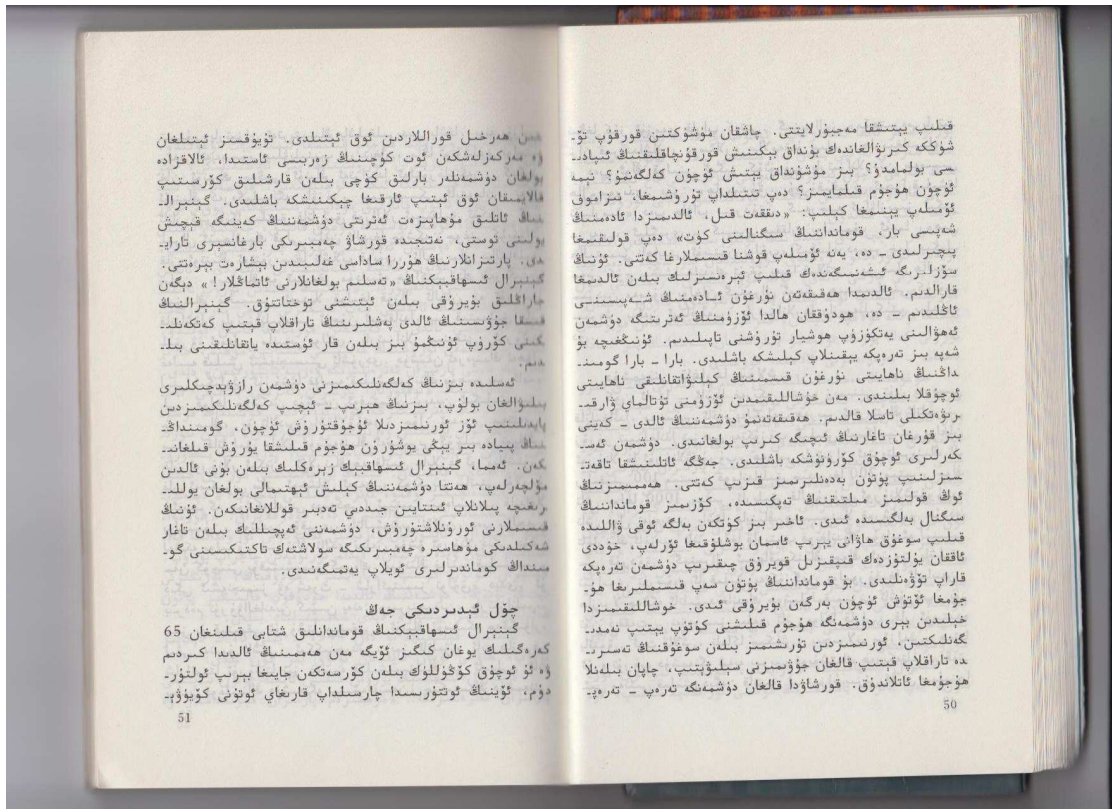 قىلىپ يېتىشقا مەجبۇرلايتتى. چاشقان مۈشۈكتىن قورقۇپ تۆ-
شۈككە كىرىۋالغاندەك بۇنداق بېكىنىش قورقۇنچاقلىقنىڭ ئىپادى-
سى بولمامدۇ؟ بىز مۇشۇنداق يېتىش ئۈچۈن كەلگەنمۇ؟ نېمە
ئۈچۈن ھۇجۇم قىلمايمىز؟ دەپ تىتىلداپ تۇرۇشىمغا، نىزاموف
ئۆمىلەپ يېنىمغا كېلىپ: «دىققەت قىل، ئالدىمىزدا ئادەمنىڭ
شەپىسى بار، قومانداننىڭ سىگنالىنى كۈت» دەپ قولىقىمغا
پىچىرلىدى - دە، يەنە ئۆمىلەپ قوشنا قىسىملارغا كەتتى. ئۇنىڭ
سۆزلىرىگە ئىشەنمىگەندەك قىلىپ ئېرەنسىزلىك بىلەن ئالدىمغا
قارالدىم. ئالدىمدا ھەقىقەتەن نۇرغۇن ئادەمنىڭ شەپىسىنى
ئاڭلىدىم - دە، ھودۇققان ھالدا ئۆزۈمنىڭ ئەترىتىگە دۈشمەن
ئەھۋالىنى يەتكۈزۈپ ھوشيار تۇرۇشنى تاپىلىدىم. ئۇنىڭغىچە بۇ
شەپە بىز تەرەپكە يېقىنلاپ كېلىشكە باشلىدى. بارا - بارا گومىن-
داڭنىڭ ناھايىتى نۇرغۇن قىسمىنىڭ كېلىۋاتقانلىقى ناھايىتى
ئوچۇقلا بىلىندى. مەن خۇشاللىقىمدىن ئۆزۈمنى تۇتالماي ۋارقى-
رىۋەتكىلى تاسلا قالدىم. ھەقىقەتەنمۇ دۈشمەننىڭ ئالدى - كەينى
بىز قۇرغان تاغارنىڭ ئىچىگە كىرىپ بولغانىدى. دۈشمەن ئەس-
كەرلىرى ئوچۇق كۆرۈنۈشكە باشلىدى. جەڭگە ئاتلىنىشقا تاقەت-
سىزلىنىپ پۈتۈن بەدەنلىرىمىز قىزىپ كەتتى. ھەممىمىزنىڭ
ئوڭ قولىمىز مىلتىقنىڭ تەپكىسىدە، كۆزىمىز قومانداننىڭ
سىگنال بەلگىسىدە ئىدى. ئاخىر بىز كۈتكەن بەلگە ئوقى ۋاللىدە
قىلىپ سوغۇق ھاۋانى يېرىپ ئاسمان بوشلۇقىغا ئۆرلەپ، خۇددى
ئاققان يۇلتۇزدەك قىپقىزىل قويرۇق چىقىرىپ دۈشمەن تەرەپكە
قاراپ تۆۋەنلىدى. بۇ قومانداننىڭ پۈتۈن سەپ قىسىملىرىغا ھۇ-
جۇمغا ئۆتۈش ئۈچۈن بەرگەن بۇيرۇقى ئىدى. خوشاللىقىمىزدا
خېلىدىن بېرى دۈشمەنگە ھۇجۇم قىلىشنى كۈتۈپ يېتىپ نەمدى-
گەنلىكتىن، ئورنىمىزدىن تۇرىشىمىز بىلەن سوغۇقنىڭ تەسىرى-
دە تاراقلاپ قېتىپ قالغان جۇۋىمىزنى سېلىۋېتىپ، چاپان بىلەنلا
ھۇجۇمغا ئاتلاندۇق. قورشاۋدا قالغان دۈشمەنگە تەرەپ - تەرەپ-
50
ھەرخىل قوراللاردىن ئوق ئېتىلدى. تۇيۇقسىز ئېتىلغان
ۋە مەركەزلەشكەن ئوت كۈچىنىڭ زەربىسى ئاستىدا، ئالاقزادە
بولغان دۈشمەنلەر بارلىق كۈچى بىلەن قارشىلىق كۆرسىتىپ
قالايمىقان ئوق ئېتىپ ئارقىغا چېكىنىشكە باشلىدى. گېنېرال-
نىڭ ئاتلىق مۇھاپىزەت ئەترىتى دۈشمەننىڭ كەينىگە قېچىش
يولىنى توستى، نەتىجىدە قورشاۋ چەمبىرىكى بارغانسېرى تاراي-
دى. پارتىزانلارنىڭ ھۇررا ساداسى غەلىبىدىن بېشارەت بېرەتتى.
گېنېرال ئىسھاقبېكنىڭ «تەسلىم بولغانلارنى ئاتماڭلار!» دېگەن
جاراڭلىق بۇيرۇقى بىلەن ئېتىشنى توختاتتۇق. گېنېرالنىڭ
قىسقا جۇۋىسىنىڭ ئالدى پەشلىرىنىڭ تاراقلاپ قېتىپ كەتكەنلى-
كىنى كۆرۈپ ئۇنىڭمۇ بىز بىلەن قار ئۈستىدە ياتقانلىقىنى بىل-
دىم.
ئەسلىدە بىزنىڭ كەلگەنلىكىمىزنى دۈشمەن رازۋېدچىكلىرى
بىلىۋالغان بولۇپ، بىزنىڭ ھېرىپ - ئېچىپ كەلگەنلىكىمىزدىن
پايدىلىنىپ ئۆز ئورنىمىزدىلا ئۇجۇقتۇرۇش ئۈچۈن، گومىنداڭ-
نىڭ پىيادە بىر يىڭى يوشۇرۇن ھۇجۇم قىلىشقا يۈرۈش قىلغانى-
كەن. ئەمما، گېنېرال ئىسھاقبېك زېرەكلىك بىلەن بۇنى ئالدىن
مۆلچەرلەپ، ھەتتا دۈشمەننىڭ كېلىش ئېھتىمالى بولغان يوللى-
رىغىچە پىلانلاپ ئىنتايىن جىددىي تەدبىر قوللانغانىكەن. ئۇنىڭ
قىسىملارنى ئورۇنلاشتۇرۇش، دۈشمەننى ئەپچىللىك بىلەن تاغار
شەكىلدىكى مۇھاسىرە چەمبىرىكىگە سولاشتەك تاكتىكىسىنى گو-
مىنداڭ كوماندىرلىرى ئويلاپ يەتمىگەنىدى.
چۆل ئېدىردىكى جەڭ
گېنېرال ئىسھاقبېكنىڭ قوماندانلىق شتابى قىلىنغان 65
كەرەگىلىك يوغان كىگىز ئۆيگە مەن ھەممىنىڭ ئالدىدا كىردىم
ۋە ئۇ ئوچۇق كۆڭۈللۈك بىلەن كۆرسەتكەن جايىغا بېرىپ ئولتۇر-
دۇم، ئۆينىڭ ئوتتۇرىسىدا چارسىلداپ قارىغاي ئوتۇنى كۆيۈۋې-
51